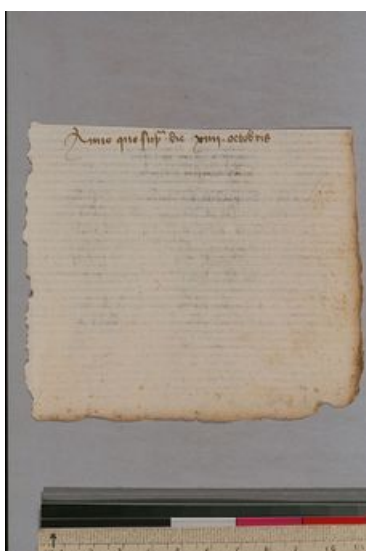 Anno quo sup̃ die xiiij octobris